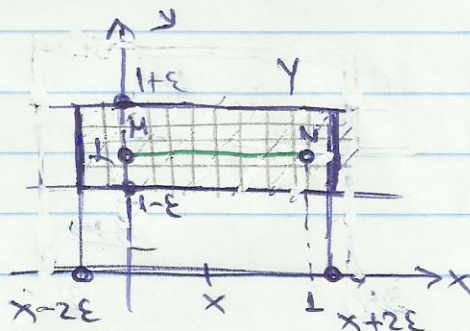 y
1+ε Y
M N
1
1-ε
x
x-2ε x 1 x+2ε